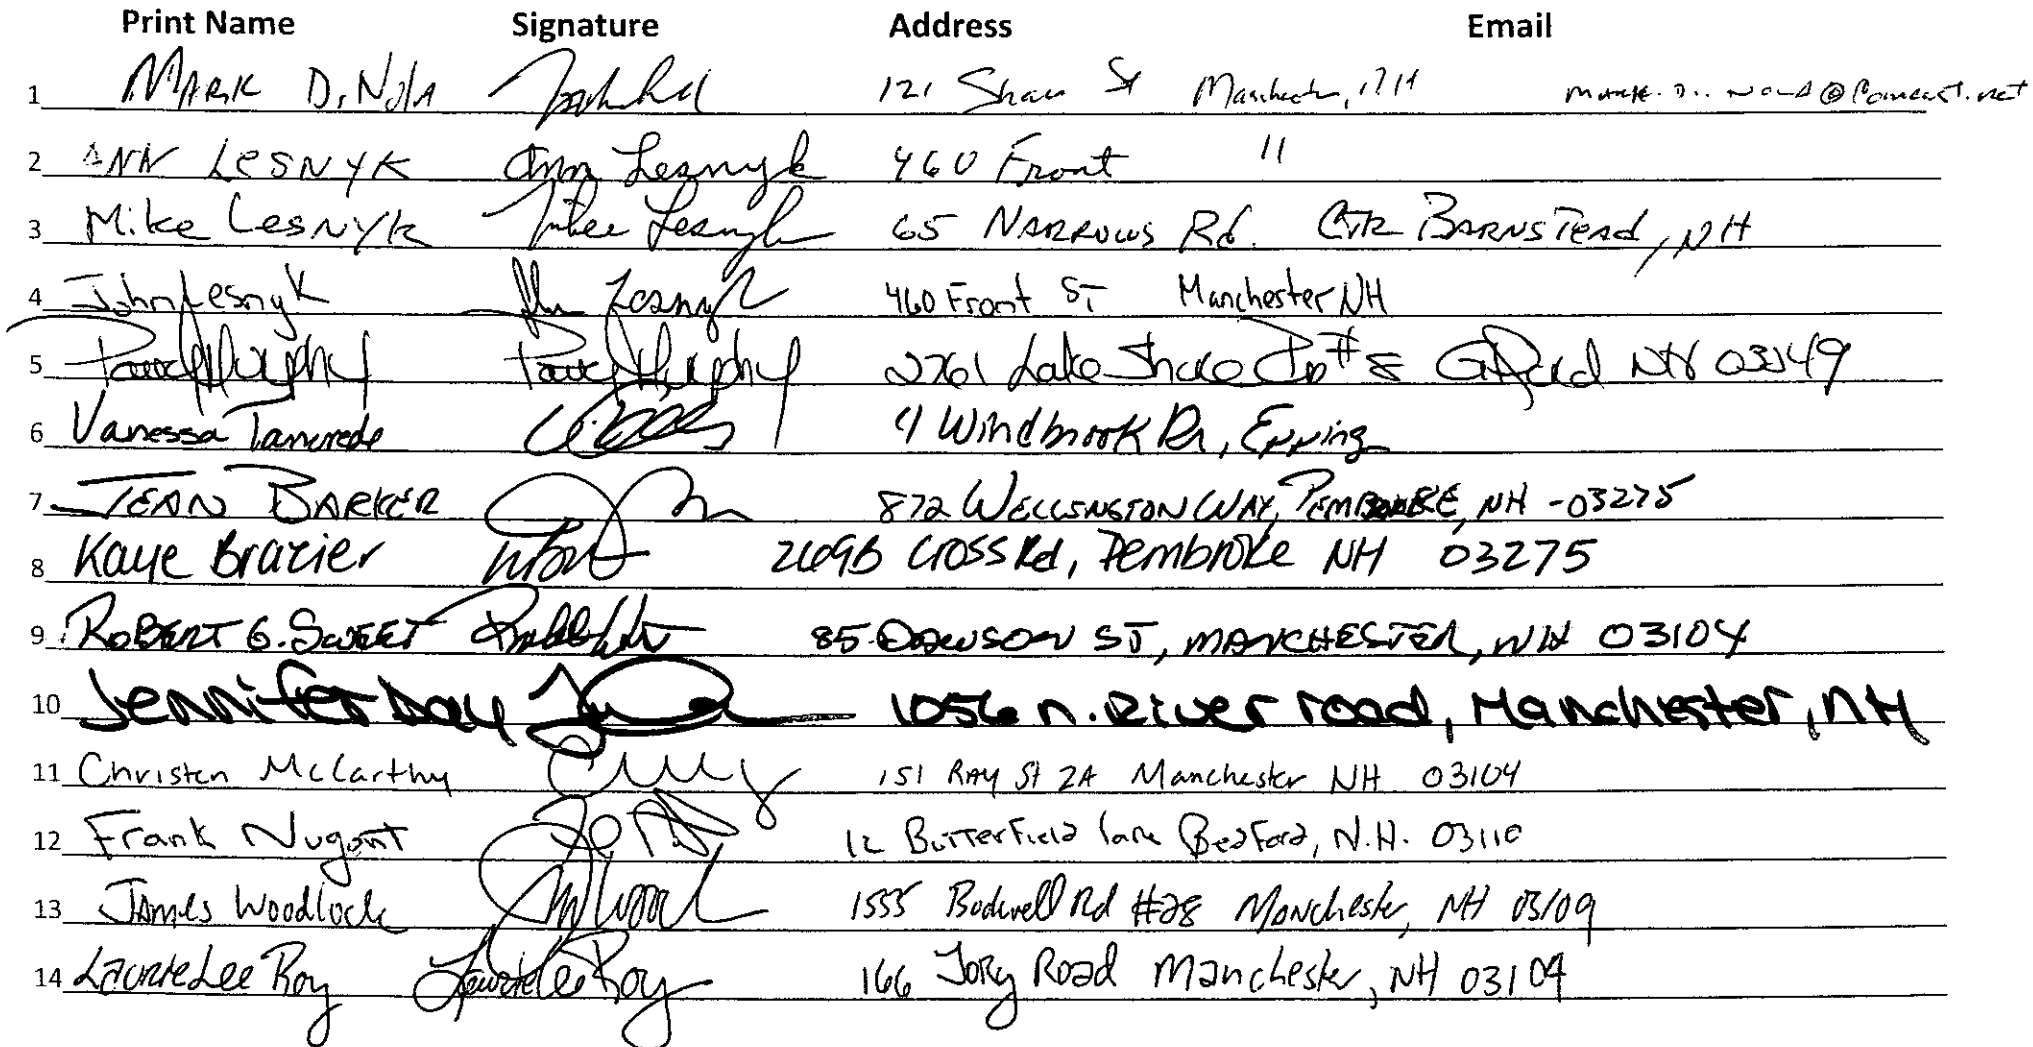 Print Name Signature Address Email
1 MARK D. NOLA 121 Shaw St Manchester, NH @comcast.net
2 ANN LESNYK Ann Lesnyk 460 Front "
3 Mike LESNYK Mike Lesnyk 65 NARROWS Rd. CTR BARNSTEAD, NH
4 John Lesnyk John Lesnyk 460 Front ST Manchester NH
5 Murphy Murphy 2761 Lake Shore Rd # 8 Gilford NH 03249
6 Vanessa Tancrede 4 Windbrook Dr, Epping
7 JEAN BARKER 872 WELLINGTON WAY, PEMBROKE, NH - 03275
8 Kaye Brazier 269B Cross Rd, Pembroke NH 03275
9 ROBERT G. SWEET 85 DAWSON ST, MANCHESTER, NH 03104
10 Jennifer Day 1056 n. River road, Manchester, NH
11 Christen McCarthy 151 RAY St 2A Manchester NH 03104
12 Frank Nugent 12 Butterfield lane Bedford, N.H. 03110
13 James Woodlock 1555 Bodwell Rd #28 Manchester, NH 03109
14 LaurieLee Roy LaurieLee Roy 166 Jory Road Manchester, NH 03109